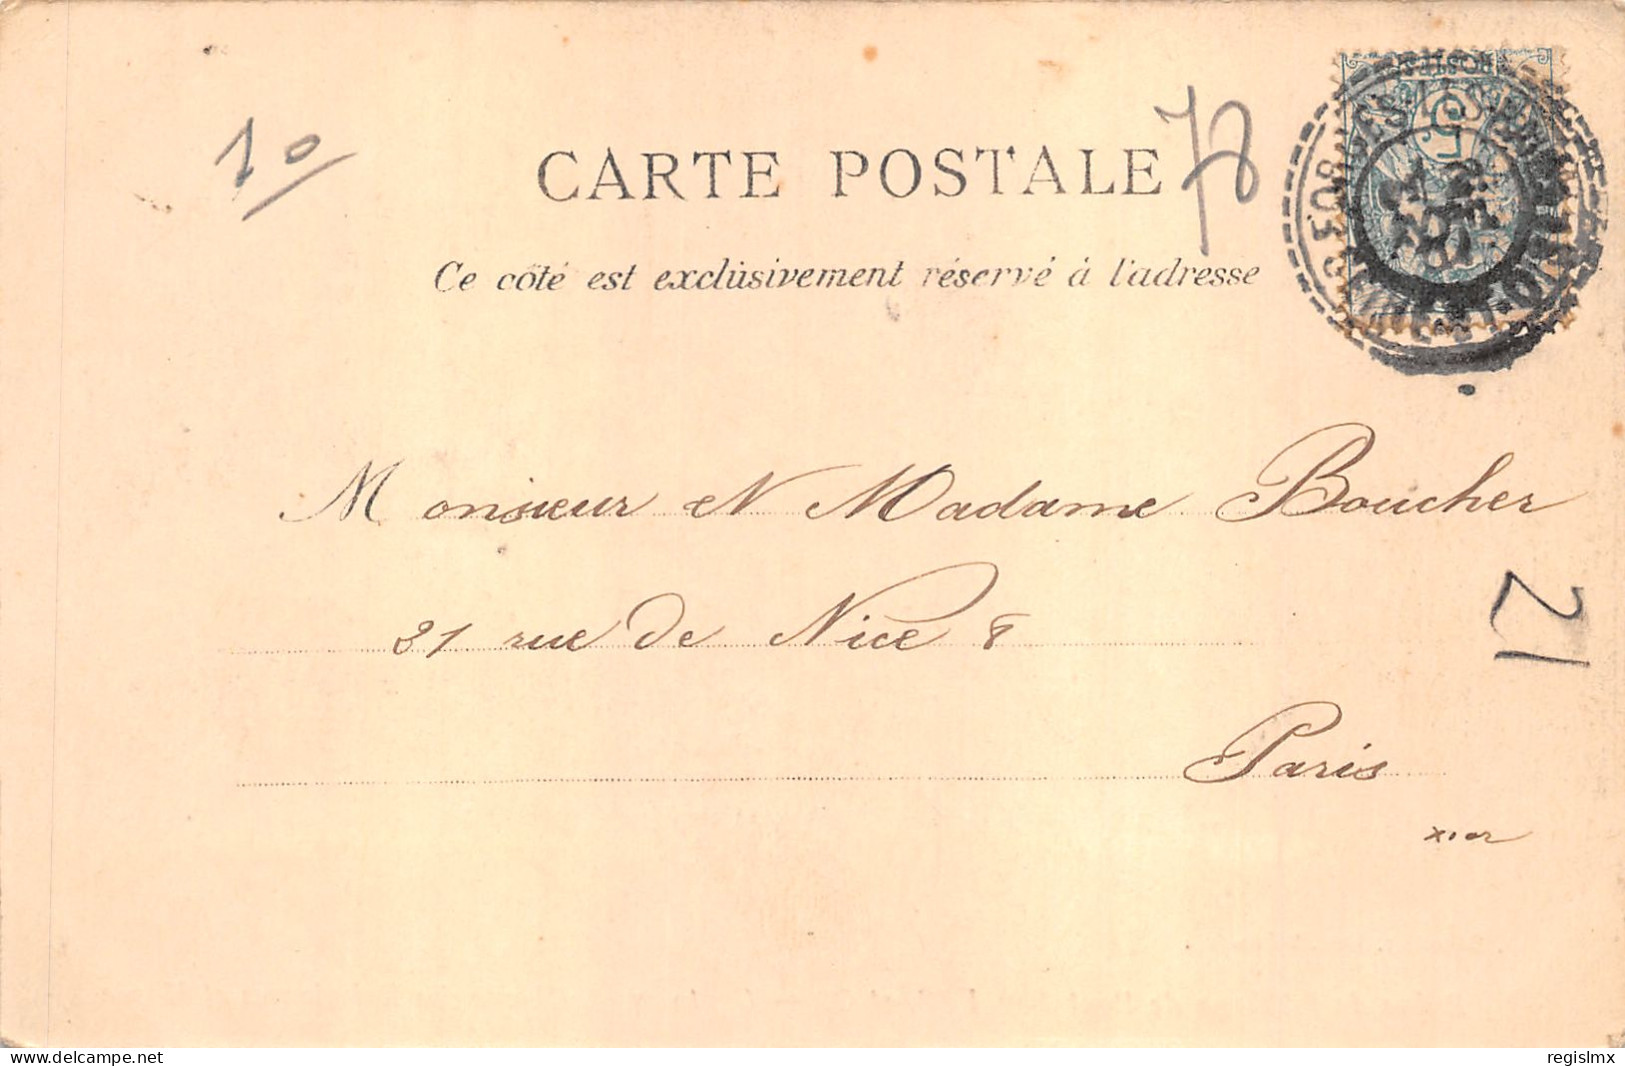 10
CARTE POSTALE
78
Ce côté est exclusivement réservé à l'adresse
FORGES-LES-
Monsieur et Madame Boucher
21
31 rue de Nice 8
Paris
delcampe.net
regislmx